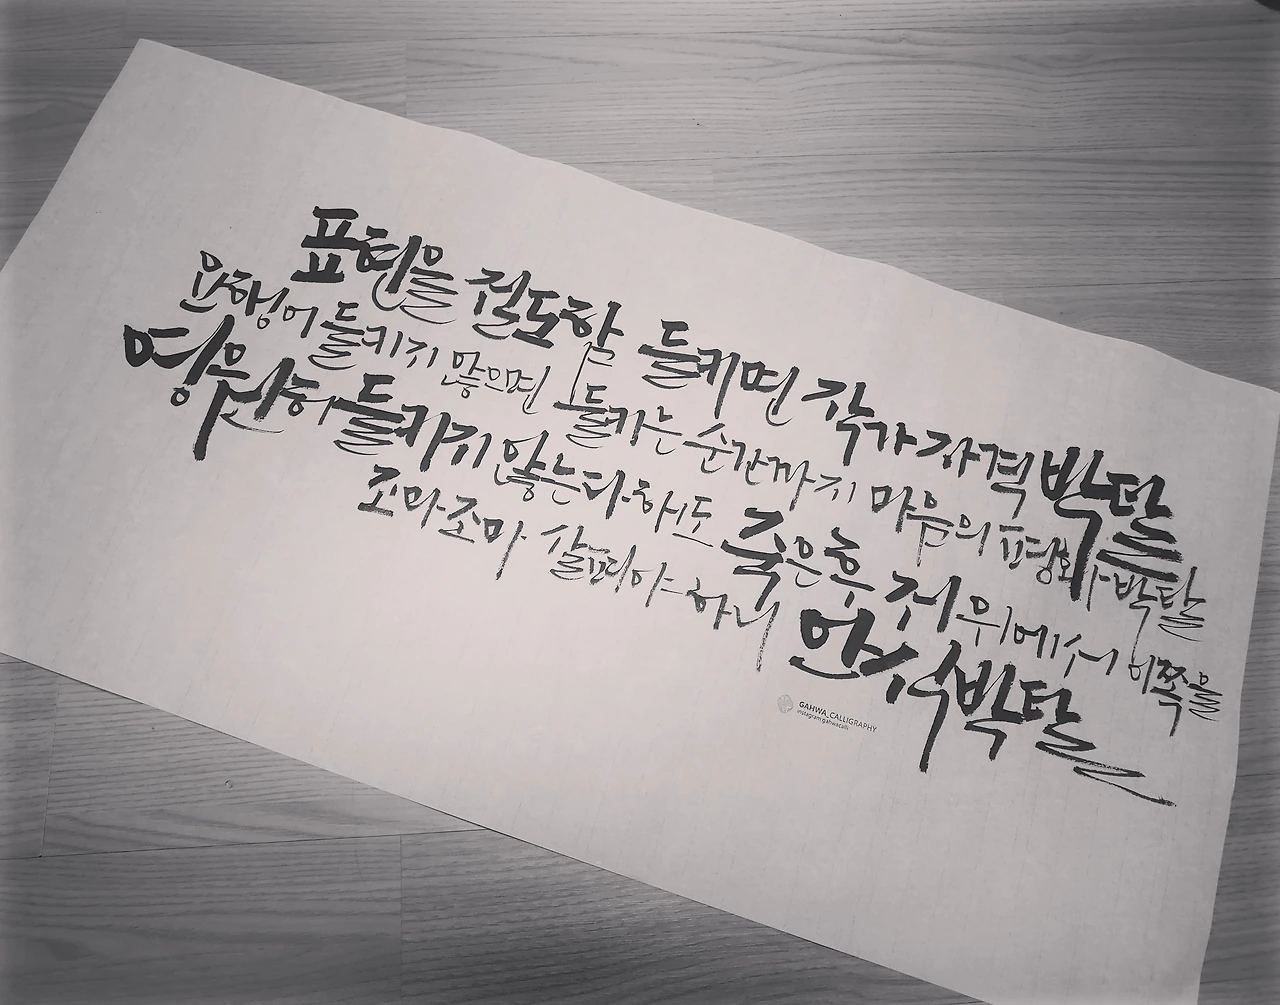 표현을 절도함 들키면 작가 자격 박탈
요행이 들키지 않으면 들키는 순간까지 마음의 평화가 박탈
영원히 들키지 않는다 하더도 죽은 후 저 위에서 이쪽을
조마조마 살펴야 하니 안식 박탈
GAHWA_CALLIGRAPHY
instagram:gahwacalli